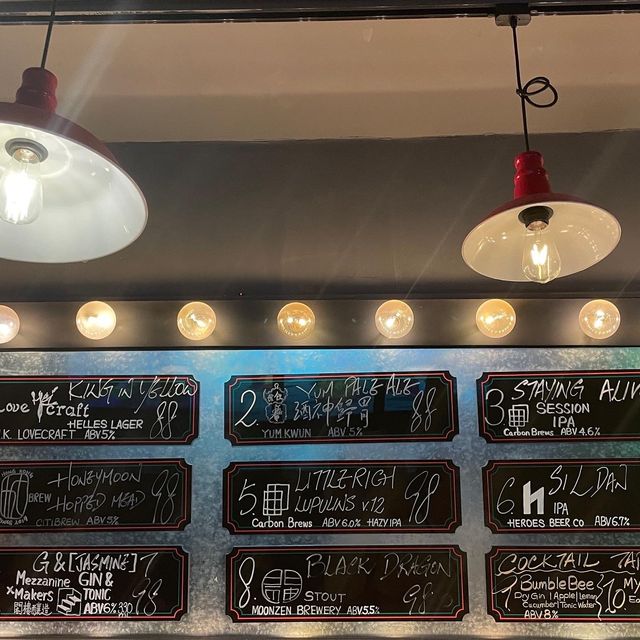 KING IN YELLOW
Love craft
HELLES LAGER
88
H.K. LOVECRAFT ABV 5%
2.
YUM PALE ALE
88
YUM KWUN ABV 5%
3
STAYING ALIV
SESSION
IPA
Carbon Brews ABV 4.6%
HONG KONG
HONEYMOON
BREW
HOPPED MEAD
98
CITIBREW ABV 5%
5.
LITTLE RICH
LUPULINS V.12
98
Carbon Brews ABV 6.0% HAZY IPA
6.
h
SIL DAN
IPA
HEROES BEER CO ABV 6.7%
G & [JASMINE] T
Mezzanine
GIN &
x Makers
TONIC
閣樓釀造
ABV 6% 330
98
8.
BLACK DRAGON
STOUT
98
MOONZEN BREWERY ABV 5.5%
COCKTAIL TA
BumbleBee
Dry Gin | Apple | Lemon
Cucumber | Tonic Water
ABV 8%
10
MY